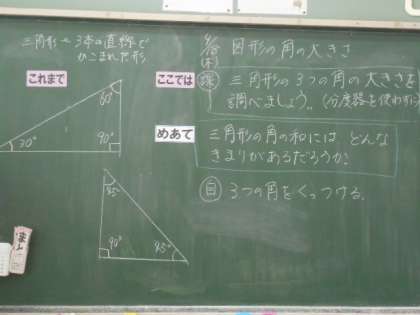 三角形…3本の直線で
かこまれた形
これまで
60°
30°
90°
45°
90°
45°
ここでは
めあて
図形の角の大きさ
三角形の3つの角の大きさを
調べましょう。(分度器を使わずに)
三角形の角の和には、どんな
きまりがあるだろうか?
自 3つの角をくっつける。